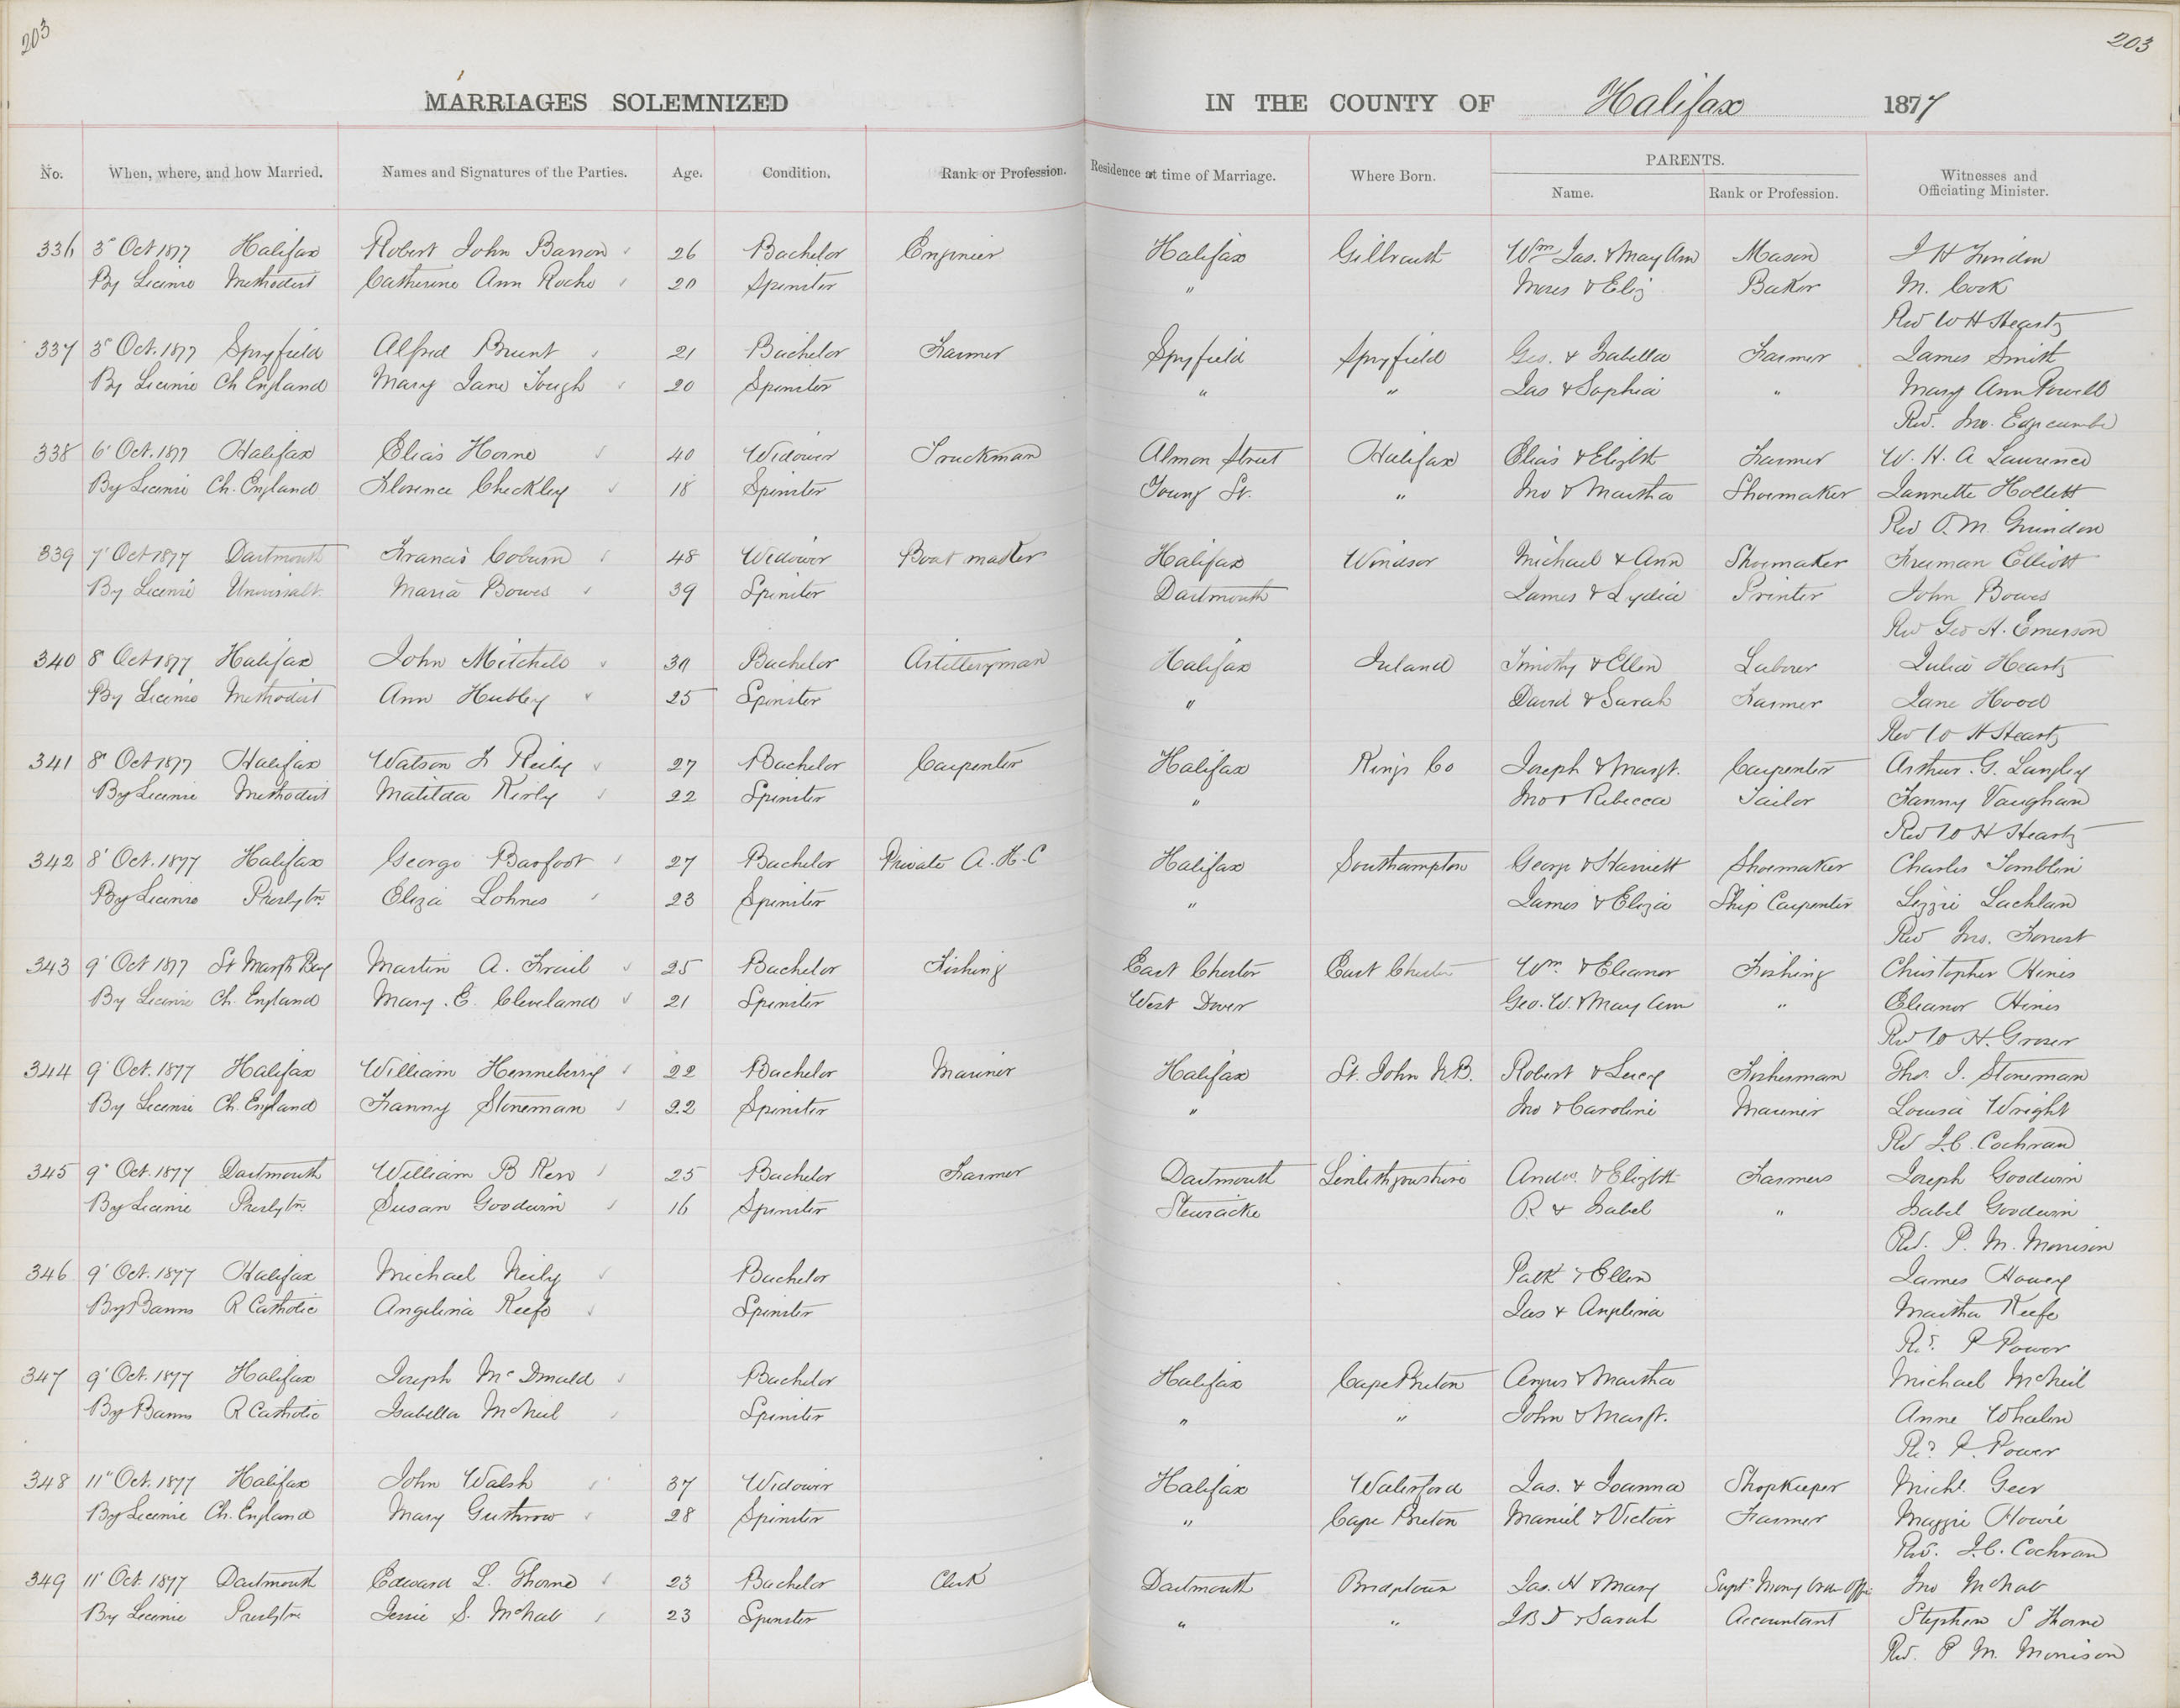 203
203
MARRIAGES SOLEMNIZED IN THE COUNTY OF Halifax 1877
PARENTS.
No. When, where, and how Married. Names and Signatures of the Parties. Age. Condition. Rank or Profession. Residence at time of Marriage. Where Born. Name. Rank or Profession. Witnesses and Officiating Minister.
336 3" Oct 1877 Halifax Robert John Barron 26 Bachelor Engineer Halifax Wm Jas. & Mary Ann Mason J H
By License Methodist Catherine Ann Roche 20 Spinster " Moses & Eliz Baker M. Cook
Rev W H Heartz
337 3" Oct. 1877 Spryfield Alfred Brunt 21 Bachelor Farmer Spryfield Spryfield Geo. & Isabella Farmer James Smith
By License Ch England Mary Jane Tough 20 Spinster " " Jas & Sophia " Mary Ann Powell
Rev. Jno. Edgecumbe
338 6' Oct. 1877 Halifax Elias Horne 40 Widower Truckman Almon Street Halifax Elias & Elizbth Farmer W. H. A Laurence
By License Ch. England Florence Checkley 18 Spinster Young St. " Jno & Martha Shoemaker Jannette Hollett
Rev O. M. Grindon
339 7' Oct 1877 Dartmouth Francis Coburn 48 Widower Boat master Halifax Windsor Michael & Ann Shoemaker Freeman Elliott
By License Universalt Maria Bowes 39 Spinster Dartmouth James & Lydia Printer John Bowes
Rev Geo H. Emerson
340 8' Oct 1877 Halifax John Mitchell Bachelor Artilleryman Halifax Ireland Timothy & Ellen Laborer Julia Heartz
By License Methodist Ann Hubley 25 Spinster " David & Sarah Farmer Jane Hood
Rev W H Heartz
341 8' Oct 1877 Halifax Watson F Reily 27 Bachelor Carpenter Halifax Kings Co Joseph & Margt. Carpenter Arthur. G. Langley
By License Methodist Matilda Kirby 22 Spinster " Jno & Rebecca Tailor Fanny Vaughan
Rev W H Heartz
342 8' Oct. 1877 Halifax George Barfoot 27 Bachelor Private A. H. C Halifax Southampton George & Harriett Shoemaker Charles Tomblin
By License Presbytn Eliza Lohnes 23 Spinster " James & Eliza Ship Carpenter Lizzie Lachlan
Rev Jno. Forrest
343 9' Oct 1877 St Margts Bay Martin A. Frail 25 Bachelor Fishing East Chester East Chester Wm. & Eleanor Fishing Christopher Hines
By License Ch. England Mary. E. Cleveland 21 Spinster West Dover Geo. W. & Mary Ann " Eleanor Hines
Rev W H. Groser
344 9' Oct. 1877 Halifax William Henneberry 22 Bachelor Mariner Halifax St. John N.B. Robert & Lucy Fisherman Thos. J. Stoneman
By License Ch. England Fanny Stoneman 22 Spinster " Jno & Caroline Mariner Louisa Wright
Rev J. C. Cochran
345 9" Oct. 1877 Dartmouth William B Kerr 25 Bachelor Farmer Dartmouth Linlithgowshire Andw. & Elizbth Farmers Joseph Goodwin
By License Presbytn Susan Goodwin 16 Spinster Stewiacke R & Isabel " Isabel Goodwin
Rev. P. M. Morrison
346 9' Oct. 1877 Halifax Michael Neily Bachelor Patk & Ellen James Howery
By Banns R Catholic Angelina Keefe Spinster Jas & Angelina Martha Keefe
Rev. P Power
347 9' Oct. 1877 Halifax Joseph McDonald Bachelor Halifax Cape Breton Angus & Martha Michael McNeil
By Banns R Catholic Isabella McNeil Spinster " " John & Margt. Anne Whalen
Rev. P. Power
348 11" Oct. 1877 Halifax John Walsh 37 Widower Halifax Waterford Jas. & Joanna Shopkeeper Michl. Geer
By License Ch. England Mary 28 Spinster " Cape Breton & Victoir Farmer Maggie Howie
Rev. J. C. Cochran
349 11' Oct. 1877 Dartmouth Edward L. Thorne 23 Bachelor Clerk Dartmouth Bridgetown Jas. H & Mary Supt. Money Order Offi. Jno McNab
By License Presbytn Jessie S. McNab 23 Spinster " " J B D & Sarah Accountant Stephen S Thorne
Rev. P M. Morrison